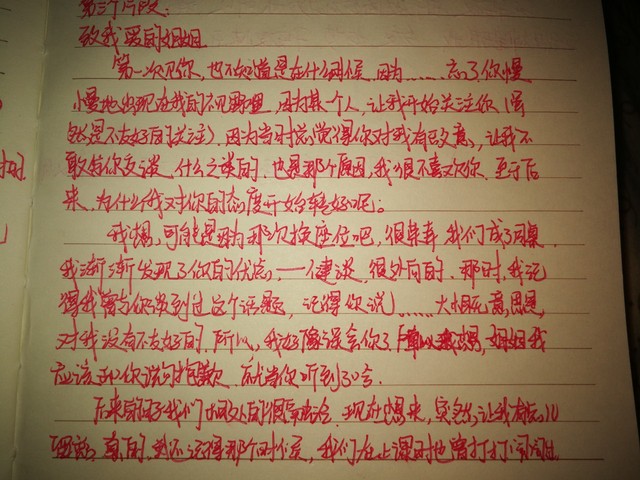 第三个片段:
致我爱的姐姐
第一次见你,也不知道是在什么时候,因为……忘了你慢
慢地出现在我的视野里,因为某个人,让我开始关注你(虽
然是不友好的关注)因为当时总觉得你对我有敌意,让我不
敢与你交谈,什么之类的,也是那个原因,我很不喜欢你,至于后
来,为什么我对你的态度开始转好呢。
我想,可能是因为那次换座位吧,很荣幸我们成了同桌,
我渐渐发现了你的优点,一个健谈,很外向的,那时,我记
得我曾与你谈到过这个话题,记得你说……大概死意思是,
对我没有不友好的,所以,我好像误会你了,姐姐我
应该和你说句抱歉,就当你听到了哈.
后来的日子我们相处的很愉洽,现在想来,突然让我有点儿
真的,就还记得那个时候,我们在上课时也曾打打闹闹